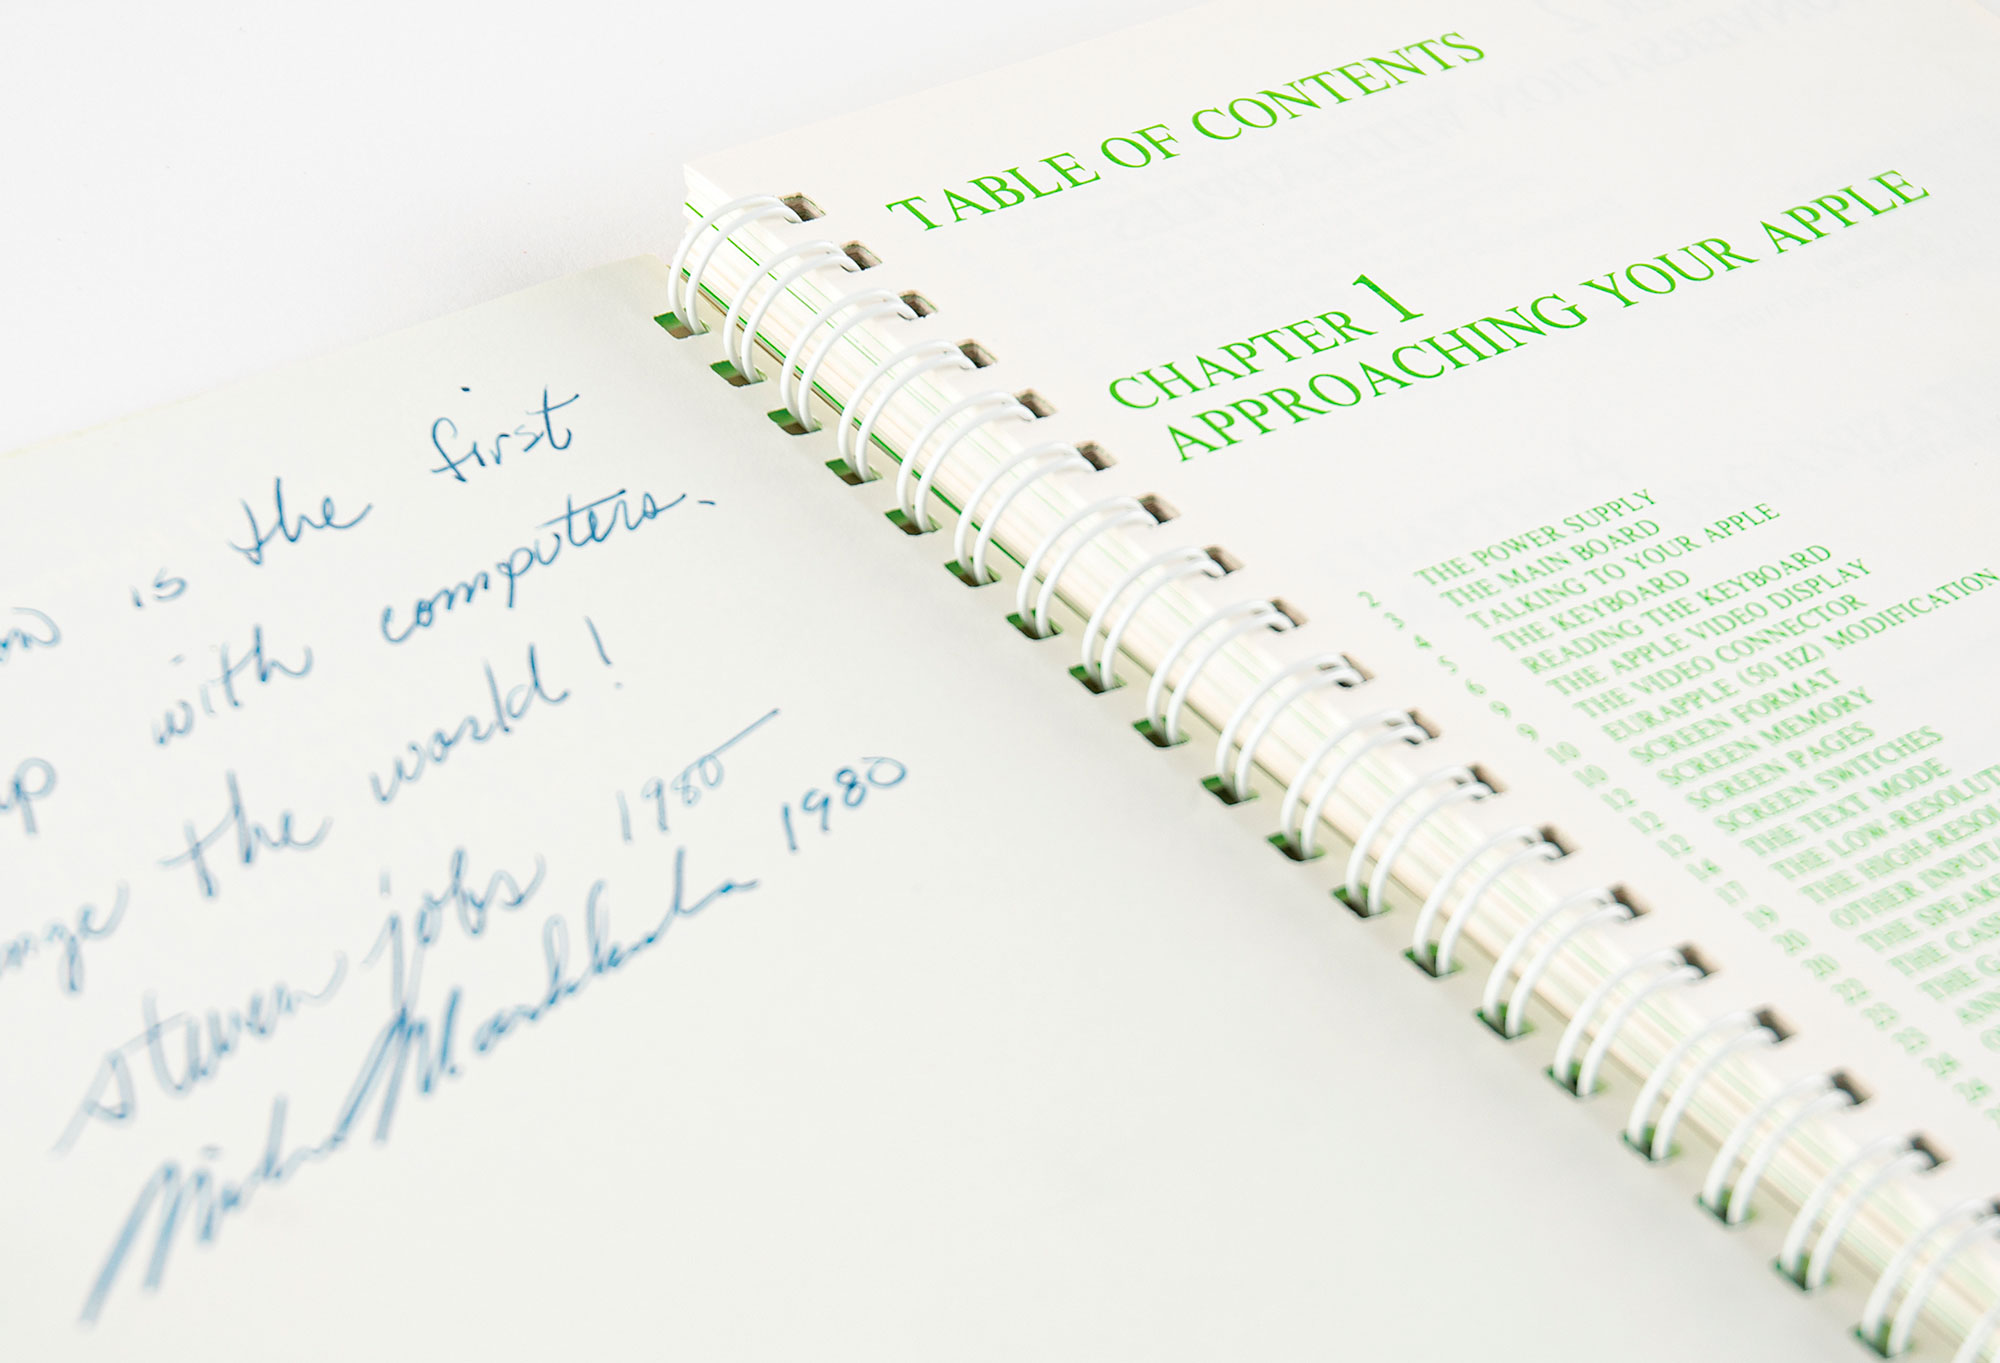 is the first
with computers.
the world!
steven jobs 1980
Markkula 1980
TABLE OF CONTENTS
CHAPTER 1
APPROACHING YOUR APPLE
2 THE POWER SUPPLY
3 THE MAIN BOARD
4 TALKING TO YOUR APPLE
5 THE KEYBOARD
6 READING THE KEYBOARD
9 THE APPLE VIDEO DISPLAY
9 THE VIDEO CONNECTOR
10 EURAPPLE (50 HZ) MODIFICATION
10 SCREEN FORMAT
12 SCREEN MEMORY
12 SCREEN PAGES
12 SCREEN SWITCHES
14 THE TEXT MODE
17 THE LOW-RESOLUT
19 THE HIGH-RESOL
20 OTHER INPUT/
20 THE SPEAKE
22 THE CAS
23 THE G
23 AN
24
24